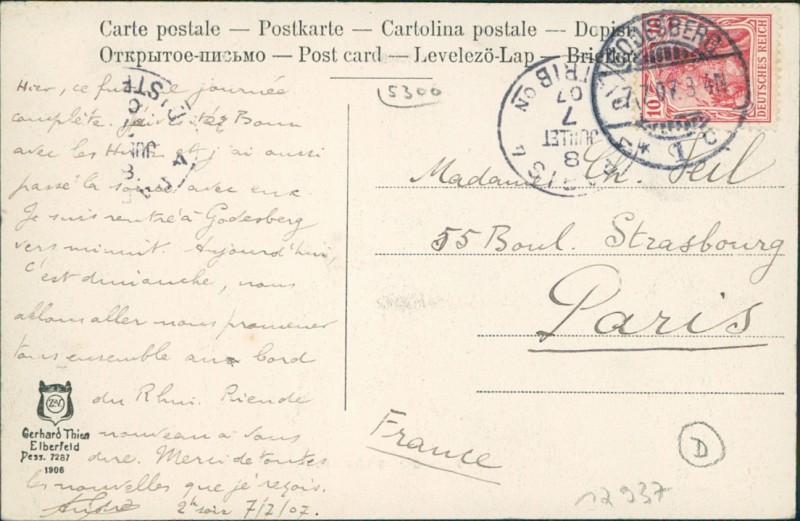 Carte postale — Postkarte — Cartolina postale — Dopisnice
Открытое-письмо — Post card — Levelező-Lap — Briefkaart
5300
GODESBERG
7.7.07. 8-9N
* 1 c
10
DEUTSCHES REICH
PARIS
DISTRIBON
07
7
JUILLET
8
Hier, ce fut une journée
complète. J'ai été à Bonn
avec les et j'ai aussi
passé la soirée avec eux
Je suis rentré à Godesberg
vers minuit. Aujourd'hui,
c'est dimanche, nous
allons aller nous promener
tous ensemble au bord
du Rhin. Rien de
nouveau à vous
dire. Merci de toutes
les nouvelles que je reçois.
André 2h soir 7/7/07.
Madame Ch. Feil
55 Boul. Strasbourg
Paris
France
Gerhard Thien
Elberfeld
Dess. 7287
1906
D
12937